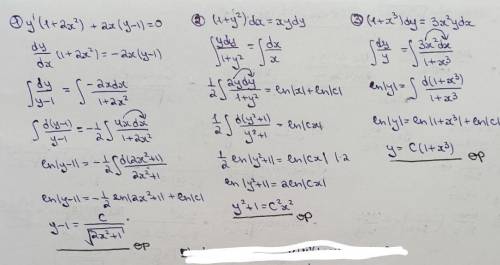 ① y'(1+2x²) + 2x(y-1)=0
dy/dx (1+2x²) = -2x(y-1)
∫ dy/(y-1) = ∫ -2xdx/(1+2x²)
∫ d(y-1)/(y-1) = -1/2 ∫ 4xdx/(1+2x²)
ln|y-1| = -1/2 ∫ d(2x²+1)/(2x²+1)
ln|y-1| = -1/2 ln|2x²+1| + ln|c|
y-1 = C/√(2x²+1)
ОР
② (1+y²)dx = xydy
∫ ydy/(1+y²) = ∫ dx/x
1/2 ∫ 2ydy/(1+y²) = ln|x|+ln|c|
1/2 ∫ d(y²+1)/(y²+1) = ln|cx|
1/2 ln|y²+1| = ln|cx| |·2
ln|y²+1| = 2ln|cx|
y²+1 = C²x²
ОР
③ (1+x³)dy = 3x²ydx
∫ dy/y = ∫ 3x²dx/(1+x³)
ln|y| = ∫ d(1+x³)/(1+x³)
ln|y| = ln|1+x³| + ln|c|
y = C(1+x³)
ОР